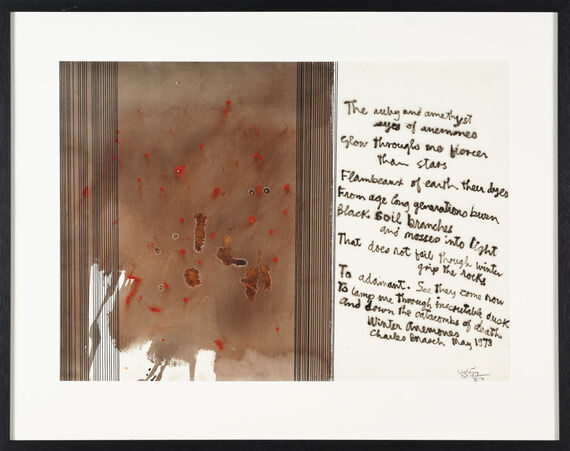 The ruby and amethyst
eyes of anemones
Glow through me fiercer
than stars
Flambeaux of earth their dyes
From age long generations burn
Black soil branches
and mosses into light
That does not fail though winter
grip the rocks
To adamant. See they come now
To lamp me through inscrutable dusk
And down the catacombs of death
Winter Anemones
Charles Brasch May 1973